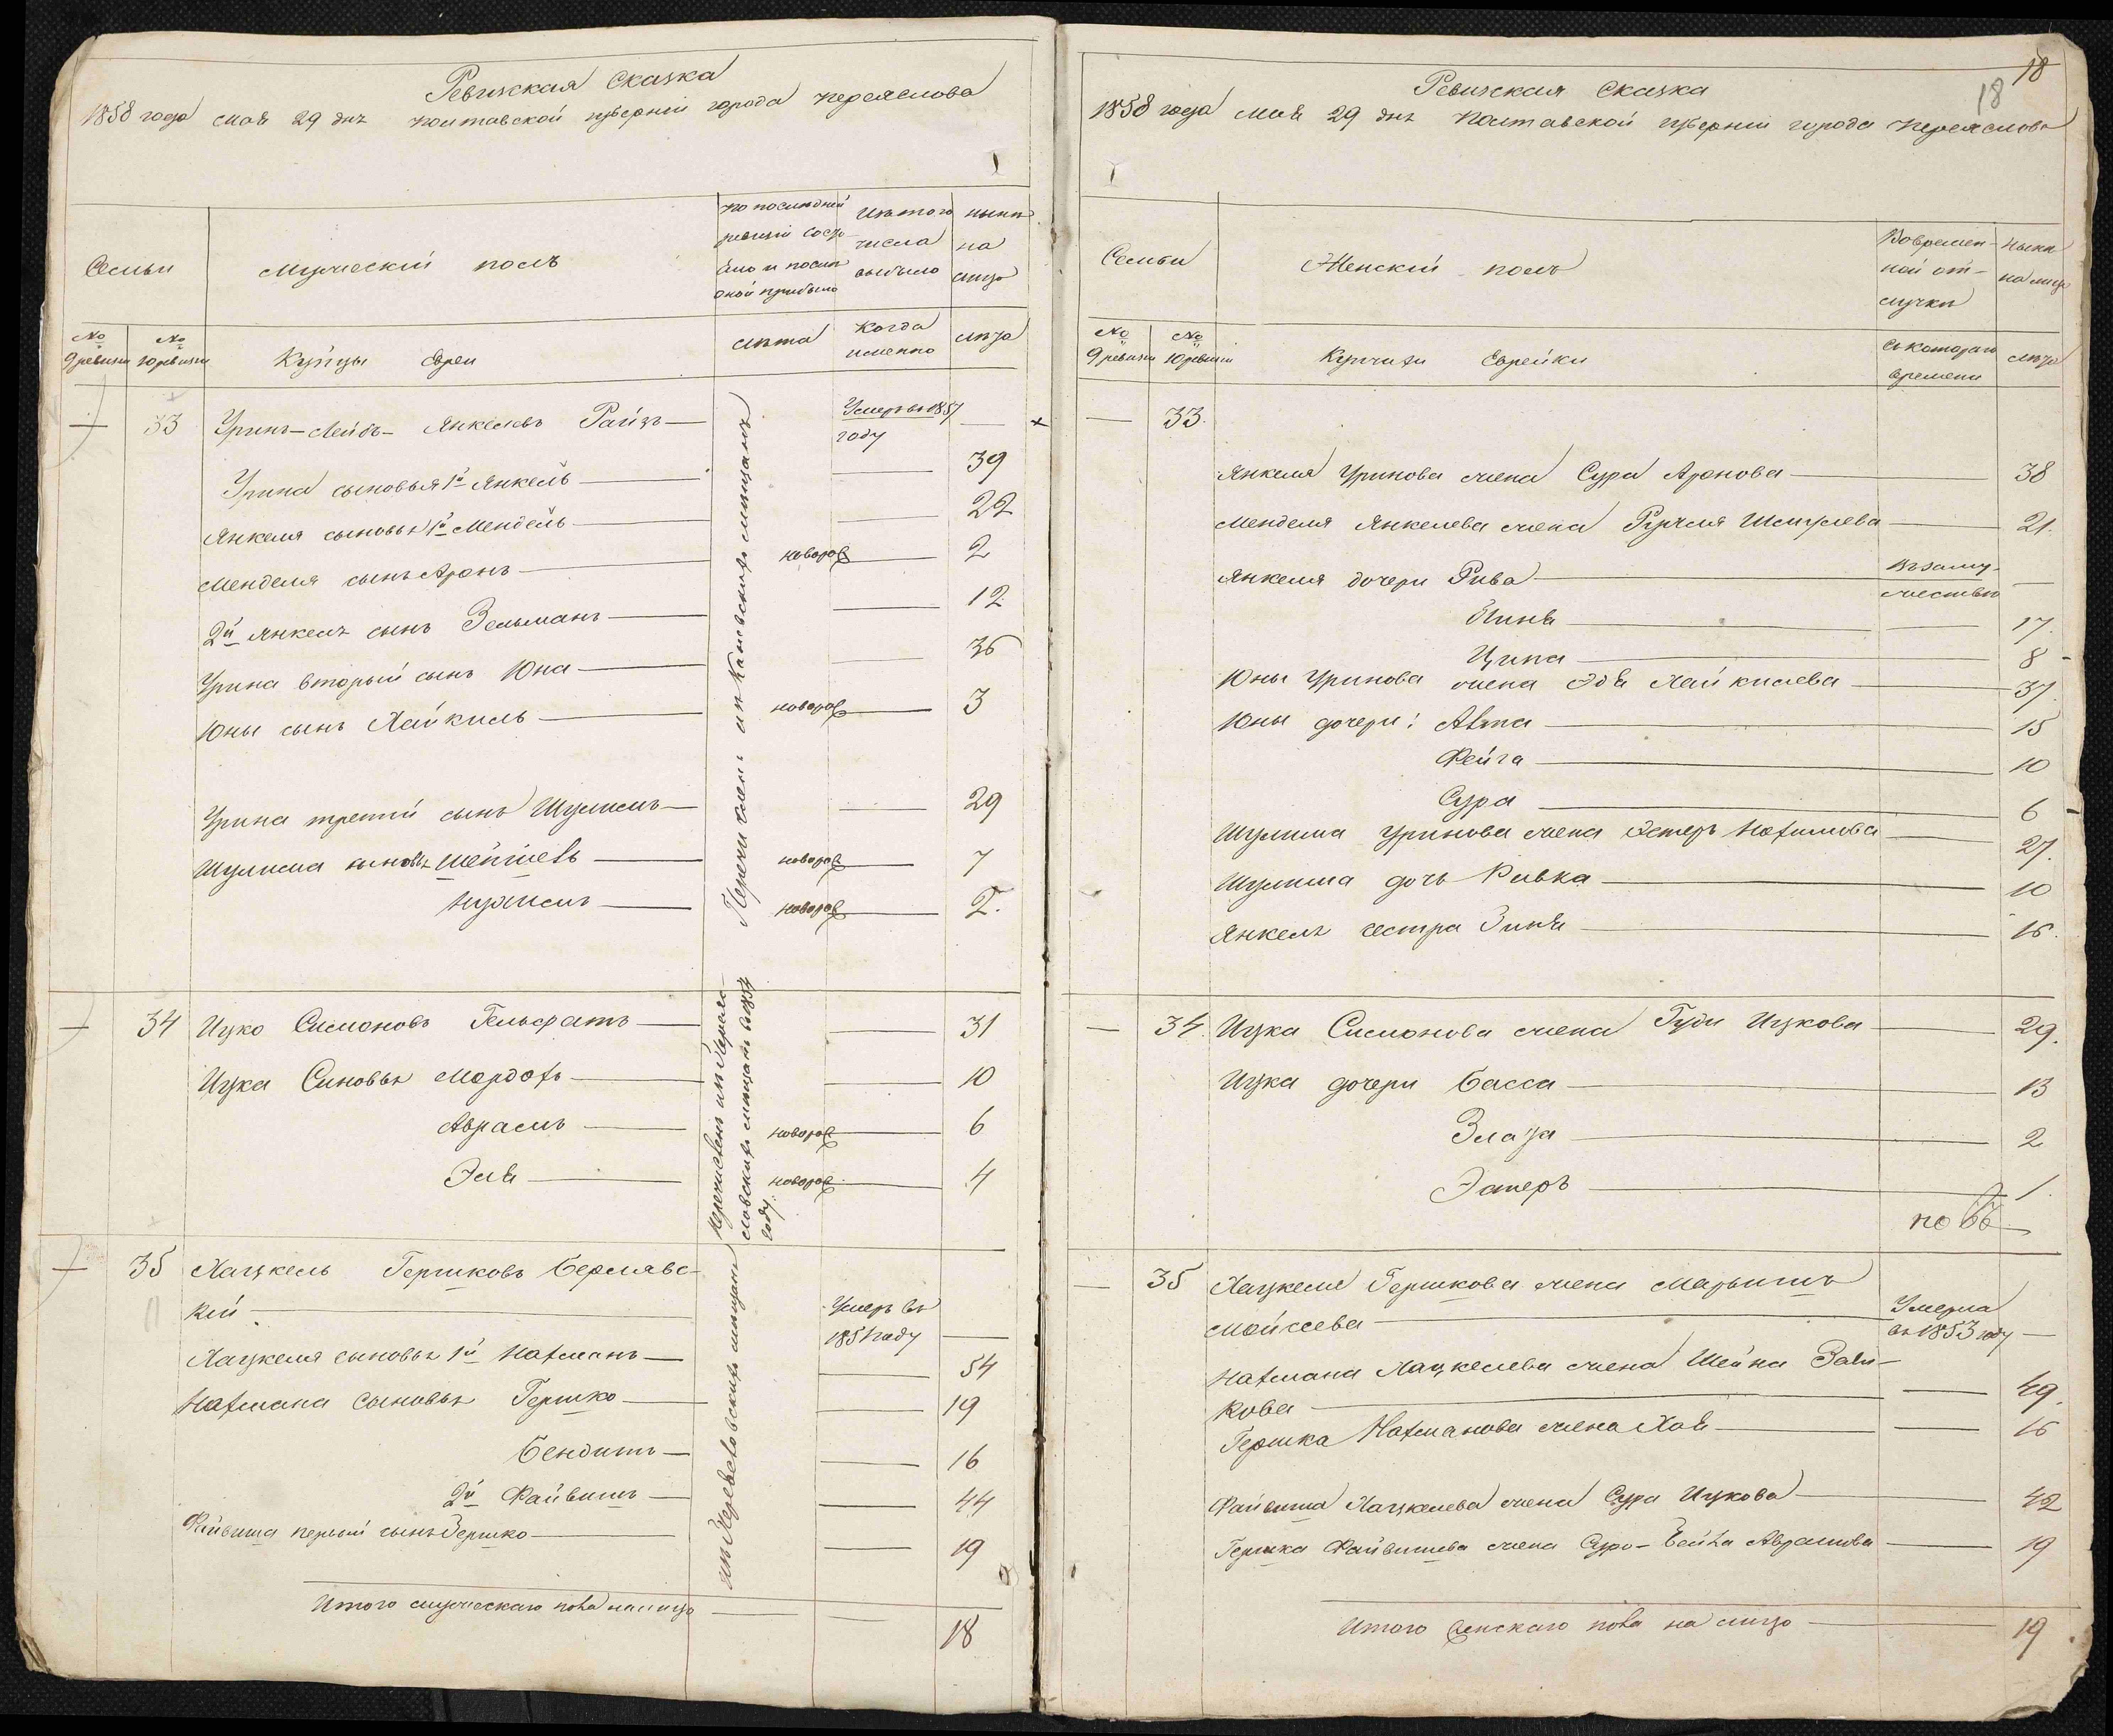 Ревизская Сказка
1858 года мая 29 дня Полтавской губернии города Переяслова
Семьи
Мужеский полъ
по последней
ревизии состо-
яло и после
оной прибыло
Изтого
числа
выбыло
ныне
на
лицо
№ 9 ревизии
№ 10 ревизии
Купцы Евреи
лета
Когда
именно
лета
— 33 Уринъ-Лейбъ Янкелевъ Райзъ — Умеръ въ 1857 году —
Урина сыновья 1й Янкель — 39
Янкеля сыновья 1й Мендель — 22
Менделя сынъ Аронъ — новорож — 2
2й Янкеля сынъ Зельманъ — 12
Урина вторый сынъ Юна — 36
Юны сынъ Хайкиль — новорож — 3
Урина третій сынъ Шулимъ — 29
Шулима сыновья — новорож — 7
новорож — 2.
Перечислены изъ Каневскихъ мещанъ
— 34 Ицко Симоновъ Гельфатъ — 31
Ицка Сыновья Мордохъ — 10
Аврамъ — новорож — 6
Эля — новорож — 4
Перечисленъ изъ Переяс-
ловскихъ мещанъ въ 1854
году.
— 35 Хацкель Гершковъ Бермявс-
кій — Умеръ въ
185 году —
Хацкеля сыновья 1й Нахманъ — 54
Нахмана Сыновья Гершко — 19
Бендитъ — 16
2й Файвишъ — 44
Файвиша первый сынъ Гершко — 19
мещанъ
Итого мужескаго пола налицо — 18
18
18
Ревизская Сказка
1858 года мая 29 дня Полтавской губернии города Переяслова
Семьи
Женскій полъ
Вовремен-
ной от-
лучке
Ныне
на лицо
№ 9 ревизии
№ 10 ревизии
Купчихи Еврейки
съ котораго
времени
лета
— 33.
Янкеля Уринова жена Сура Аронова — 38
Менделя Янкелева жена Рухля Шмулева — 21.
Янкеля дочери Рива — Въ заму-
жестве —
17.
Ципа — 8
Юны Уринова жена Эдя Хайкилева — 37.
Юны дочери: — 15
Фейга — 10
Сура — 6
Шулима Уринова жена Эстеръ Нахимова — 27.
Шулима дочь Ривка — 10
Янкеля сестра Зиня — 16.
— 34. Ицка Симонова жена Гуди Ицкова — 29.
Ицка дочери Басса — 13
Злата — 2
Эстеръ — 1.
— 35 Хацкеля Гершкова жена Марьяшъ
Мойсеева — Умерла
въ 1853 году —
Нахмана Хацкелева жена Шейна Заві-
кова — 49.
Гершка Нахманова жена Хая — 16
Файвиша Хацкелева жена Сура Ицкова — 42
Гершка Файвишева жена Суро-Бейла Аврамова — 19
Итого женскаго пола на лицо — 19